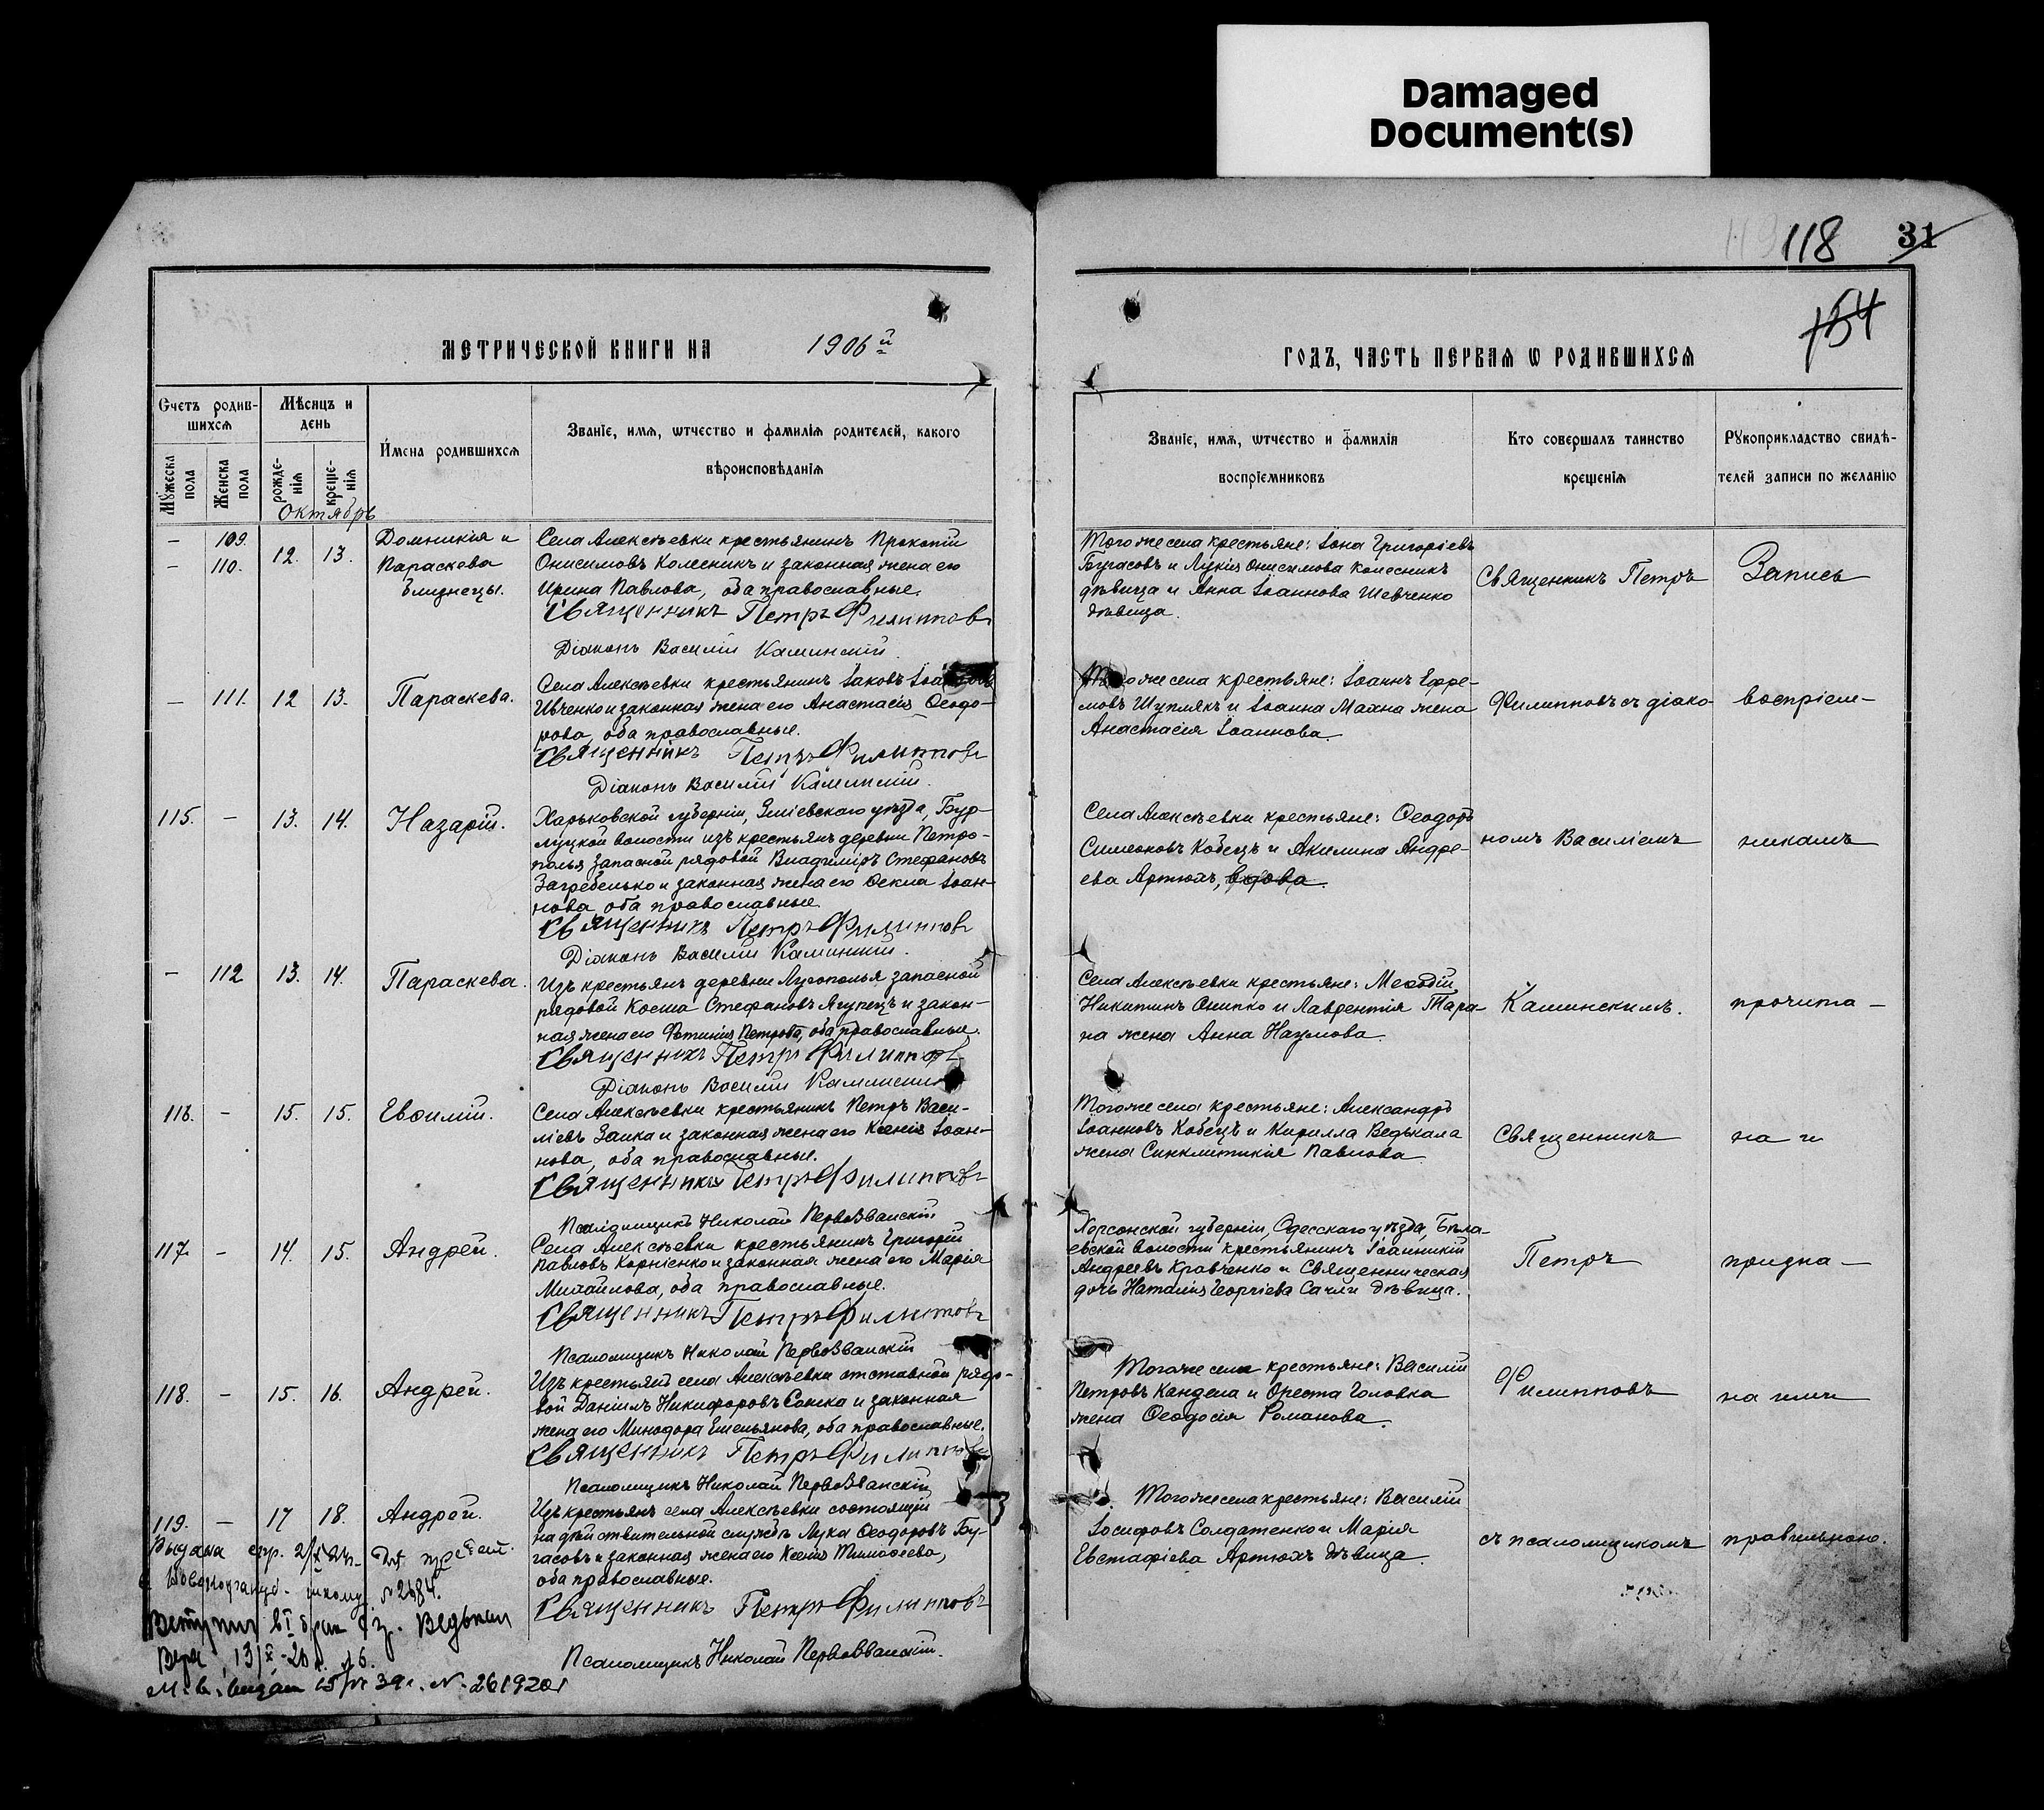 Damaged
Document(s)
118 31
154
МЕТРИЧЕСКОЙ КНИГИ НА 1906й
Счетъ родив-
шихся
Мѣсяцъ и
день
Мужеска
пола
Женска
пола
рожде-
нія
креще-
нія
Октябрь
Имена родившихся
Званіе, имя, ѿтчество и фамилія родителей, какого
вѣроисповѣданія
— 109.
— 110.
12. 13.
Домникія и
Параскева
близнецы.
Села Алексѣевки крестьянинъ Прокопій
Онисимовъ Колесникъ и законная жена его
Ирина Павлова, оба православные.
Священникъ Петръ Филипповъ
Діаконъ Василій Каминскій.
— 111. 12 13. Параскева.
Села Алексѣевки крестьянинъ Іаковъ
Ивченко и законная жена его Анастасія Ѳеодо-
рова, оба православные.
Священникъ Петръ Филипповъ
Діаконъ Василій Каминскій.
115. — 13. 14. Назарій.
Харьковской губерніи, Зміевскаго уѣзда, Бур-
луцкой волости изъ крестьянъ деревни Петро-
полья запасной рядовой Владиміръ Стефановъ
Загребелько и законная жена его Ѳекла Іоан-
нова, оба православные.
Священникъ Петръ Филипповъ
Діаконъ Василій Каминскій.
— 112 13. 14. Параскева.
Изъ крестьянъ деревни Лугополья запасной
рядовой Косма Стефановъ Ягупецъ и закон-
ная жена его Фотинія Петрова, оба православные.
Священникъ Петръ Филипповъ
Діаконъ Василій Каминскій
116. — 15. 15. Евѳимій.
Села Алексѣевки крестьянинъ Петръ Васи-
ліевъ Заика и законная жена его Ксенія Іоан-
нова, оба православные.
Священникъ Петръ Филипповъ
Псаломщикъ Николай Первозванскій
117. — 14. 15. Андрей.
Села Алексѣевки крестьянинъ Григорій
Павловъ Корніенко и законная жена его Марія
Михайлова, оба православные.
Священникъ Петръ Филипповъ
Псаломщикъ Николай Первозванскій
118. — 15. 16. Андрей.
Изъ крестьянъ села Алексѣевки отставной рядо-
вой Даніилъ Никифоровъ и законная
жена его Минодора Емельянова, оба православные.
Священникъ Петръ Филипповъ
Псаломщикъ Николай Первозванскій
119. — 17 18. Андрей.
Изъ крестьянъ села Алексѣевки состоящій
на дѣйствительной службѣ Лука Ѳеодоровъ Бу-
гасовъ и законная жена его Ксенія Тимоѳеева,
оба православные.
Священникъ Петръ Филипповъ
Псаломщикъ Николай Первозванскій.
Выдана
№ 2484.
№ 261920
ГОДЪ, ЧАСТЬ ПЕРВАЯ Ѡ РОДИВШИХСЯ
Званіе, имя, ѿтчество и фамилія
воспріемниковъ
Кто совершалъ таинство
крещенія
Рукоприкладство свидѣ-
телей записи по желанію
Того же села крестьяне: Іона Григоріевъ
Бугасовъ и Лукія Онисимова Колесникъ
дѣвица и Анна Іоаннова Шевченко
дѣвица.
Священникъ Петръ
Запись
Того же села крестьяне: Іоаннъ Ефре-
мовъ Шупликъ и Іоанна Махна жена
Анастасія Іоаннова.
Филипповъ съ діако-
воспріем-
Села Алексѣевки крестьяне: Ѳеодоръ
Симеоновъ Кобецъ и Акилина Андре-
ева Артюхъ, вдова.
номъ Василіемъ
никамъ
Села Алексѣевки крестьяне: Меѳодій
Никитинъ Онипко и Лаврентія Тара-
на жена Анна Наумова.
Каминскимъ.
прочита-
Того же села крестьяне: Александръ
Іоанновъ Кобецъ и Кирилла Ведькала
жена Синклитикія Павлова
Священникъ
на и
Херсонской губерніи, Одесскаго уѣзда, Бѣля-
евской волости крестьянинъ Іоанникій
Андреевъ Кравченко и Священническая
дочь Наталія Георгіева дѣвица.
Петръ
призна-
Того же села крестьяне: Василій
Петровъ Кандела и Ореста Головка
жена Ѳеодосія Романова.
Филипповъ
на ими
Того же села крестьяне: Василій
Іосифовъ Солдатенко и Марія
Евстафіева Артюхъ дѣвица.
съ псаломщикомъ
правильною.